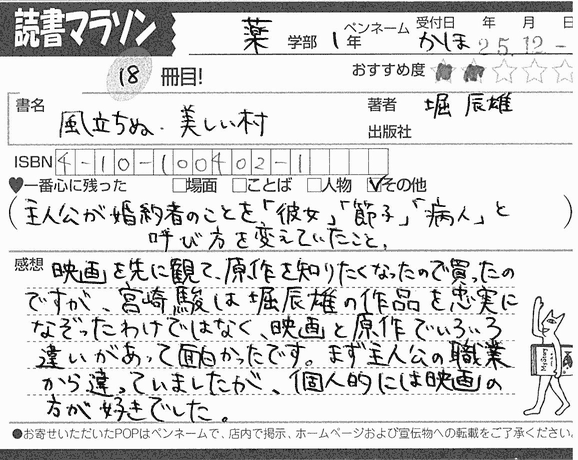 読書マラソン
薬 学部 1 年 ペンネーム かほ 受付日 年 月 日 25.12.-
18 冊目! おすすめ度 ★★☆☆☆
書名 風立ちぬ・美しい村 著者 堀 辰雄
出版社
ISBN 4-10-100402-1
♥一番心に残った □場面 □ことば □人物 ☑その他
(主人公が婚約者のことを、「彼女」「節子」「病人」と
呼び方を変えていたこと。)
感想 映画を先に観て、原作を知りたくなったので買ったの
ですが、宮崎駿は堀辰雄の作品を忠実に
なぞったわけではなく、映画と原作でいろいろ
違いがあって面白かったです。まず主人公の職業
から違っていましたが、個人的には映画の
方が好きでした。
●お寄せいただいたPOPはペンネームで、店内で掲示、ホームページおよび宣伝物への転載をご了承ください。